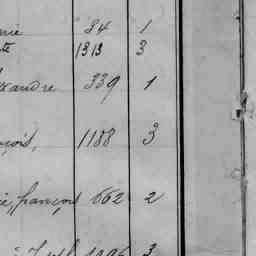 nie 84 1
te 1313 3
xandre 339 1
nçois, 1188 3
ie, françois 662 2
3